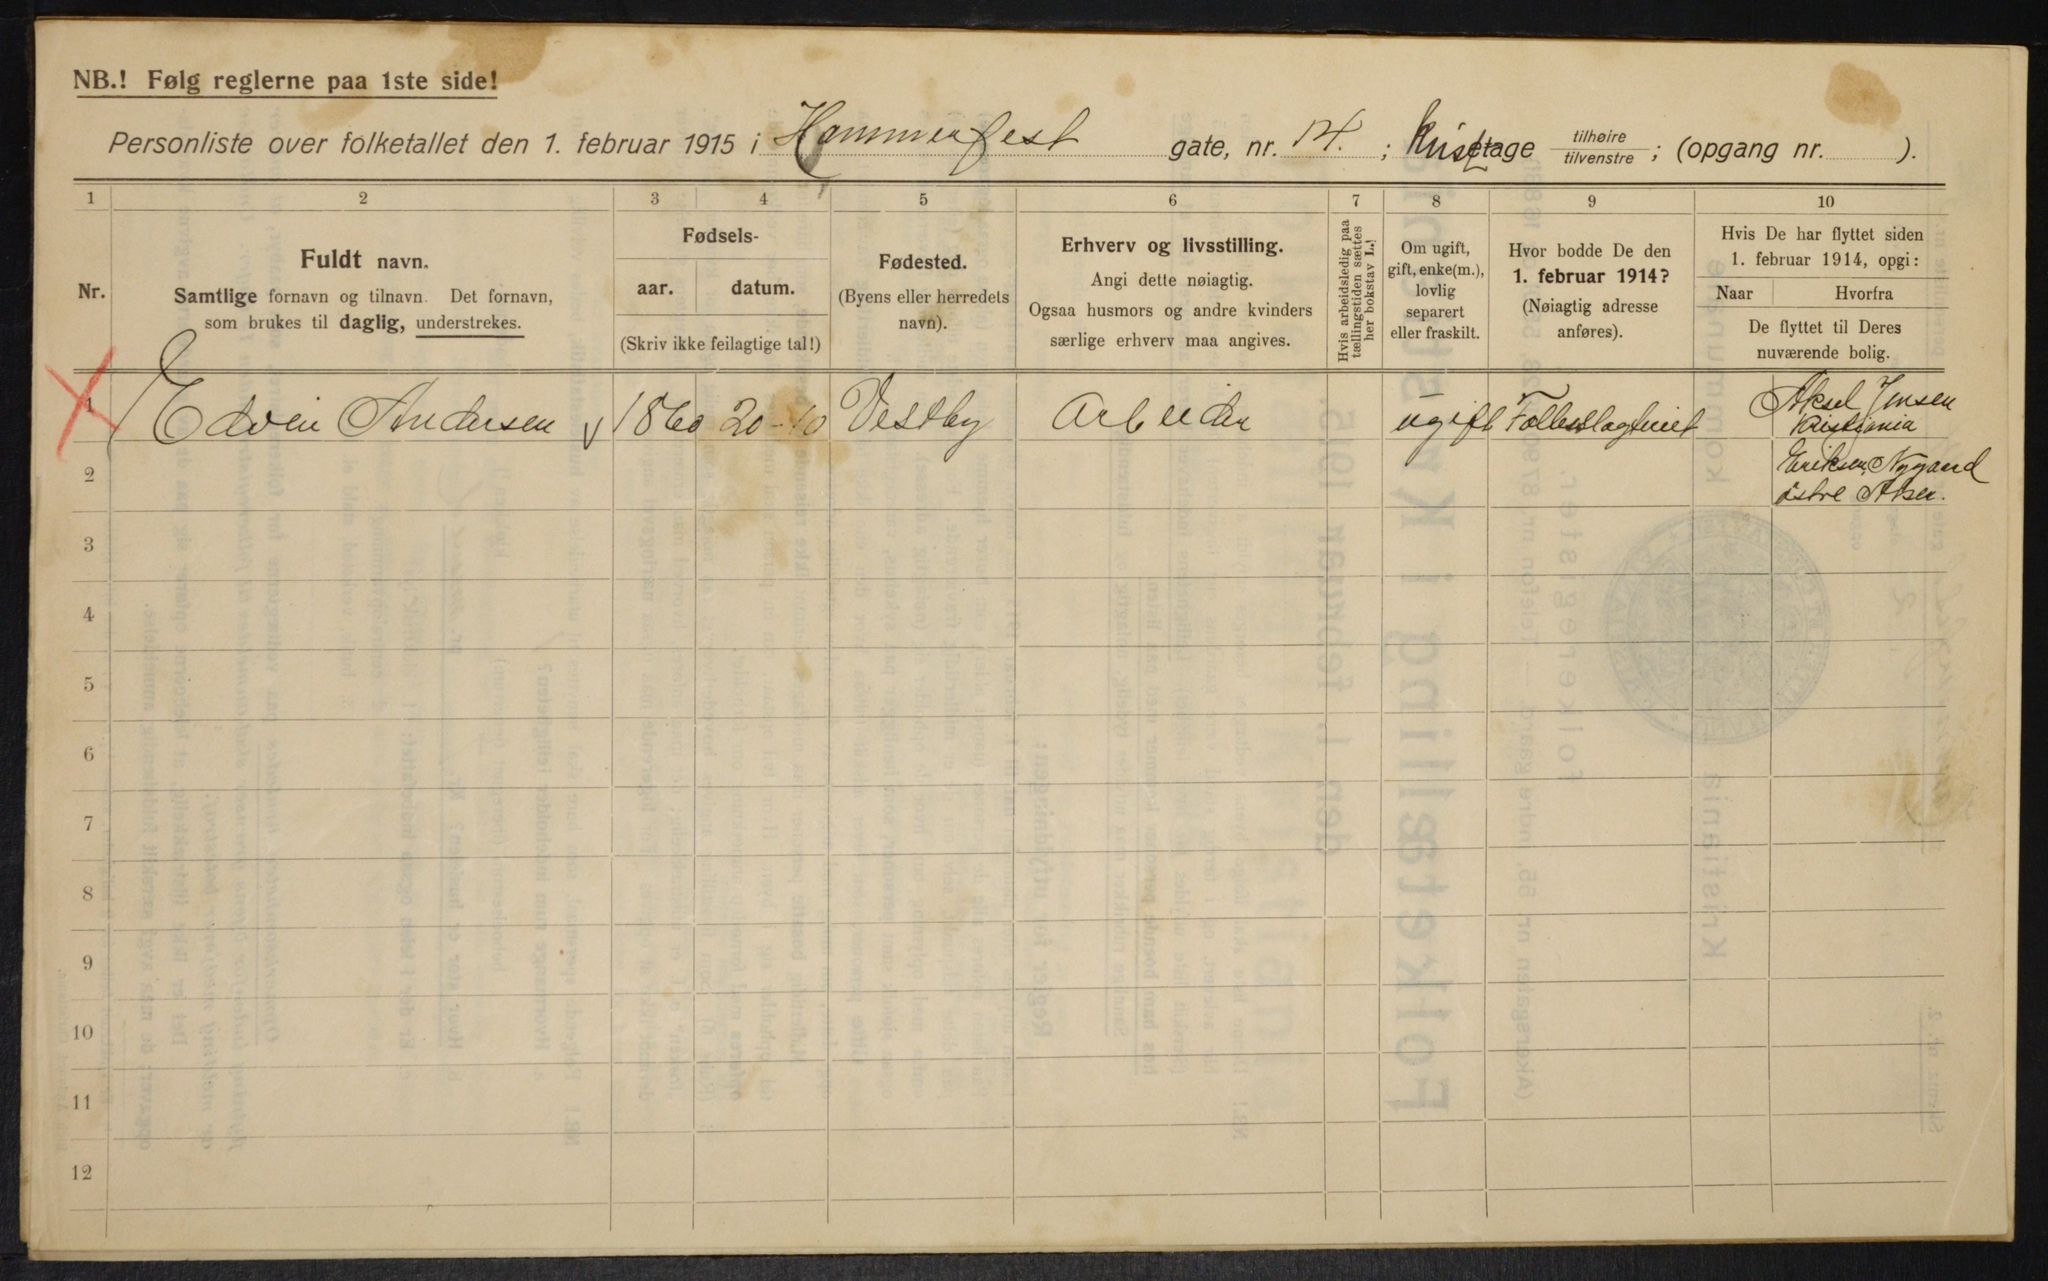 NB.! Følg reglerne paa 1ste side!
Personliste over folketallet den 1. februar 1915 i Hammerfest gate, nr. 14. ; etage tilhøire / tilvenstre ; (opgang nr. ).
1 2 3 4 5 6 7 8 9 10
Nr.
Fuldt navn.
Samtlige fornavn og tilnavn. Det fornavn,
som brukes til daglig, understrekes.
Fødsels-
aar. datum.
(Skriv ikke feilagtige tal!)
Fødested.
(Byens eller herredets
navn).
Erhverv og livsstilling.
Angi dette nøiagtig.
Ogsaa husmors og andre kvinders
særlige erhverv maa angives.
Hvis arbeidsledig paa
tællingstiden sættes
her bokstav L.!
Om ugift,
gift, enke(m.),
lovlig
separert
eller fraskilt.
Hvor bodde De den
1. februar 1914?
(Nøiagtig adresse
anføres).
Hvis De har flyttet siden
1. februar 1914, opgi:
Naar Hvorfra
De flyttet til Deres
nuværende bolig.
1 Edvin Andersen 1860 20-10 Vestby Arbeider ugift Aksel Jensen
Kristiania
2 Eriksen, Nygaard
østre Aker.
3
4
5
6
7
8
9
10
11
12